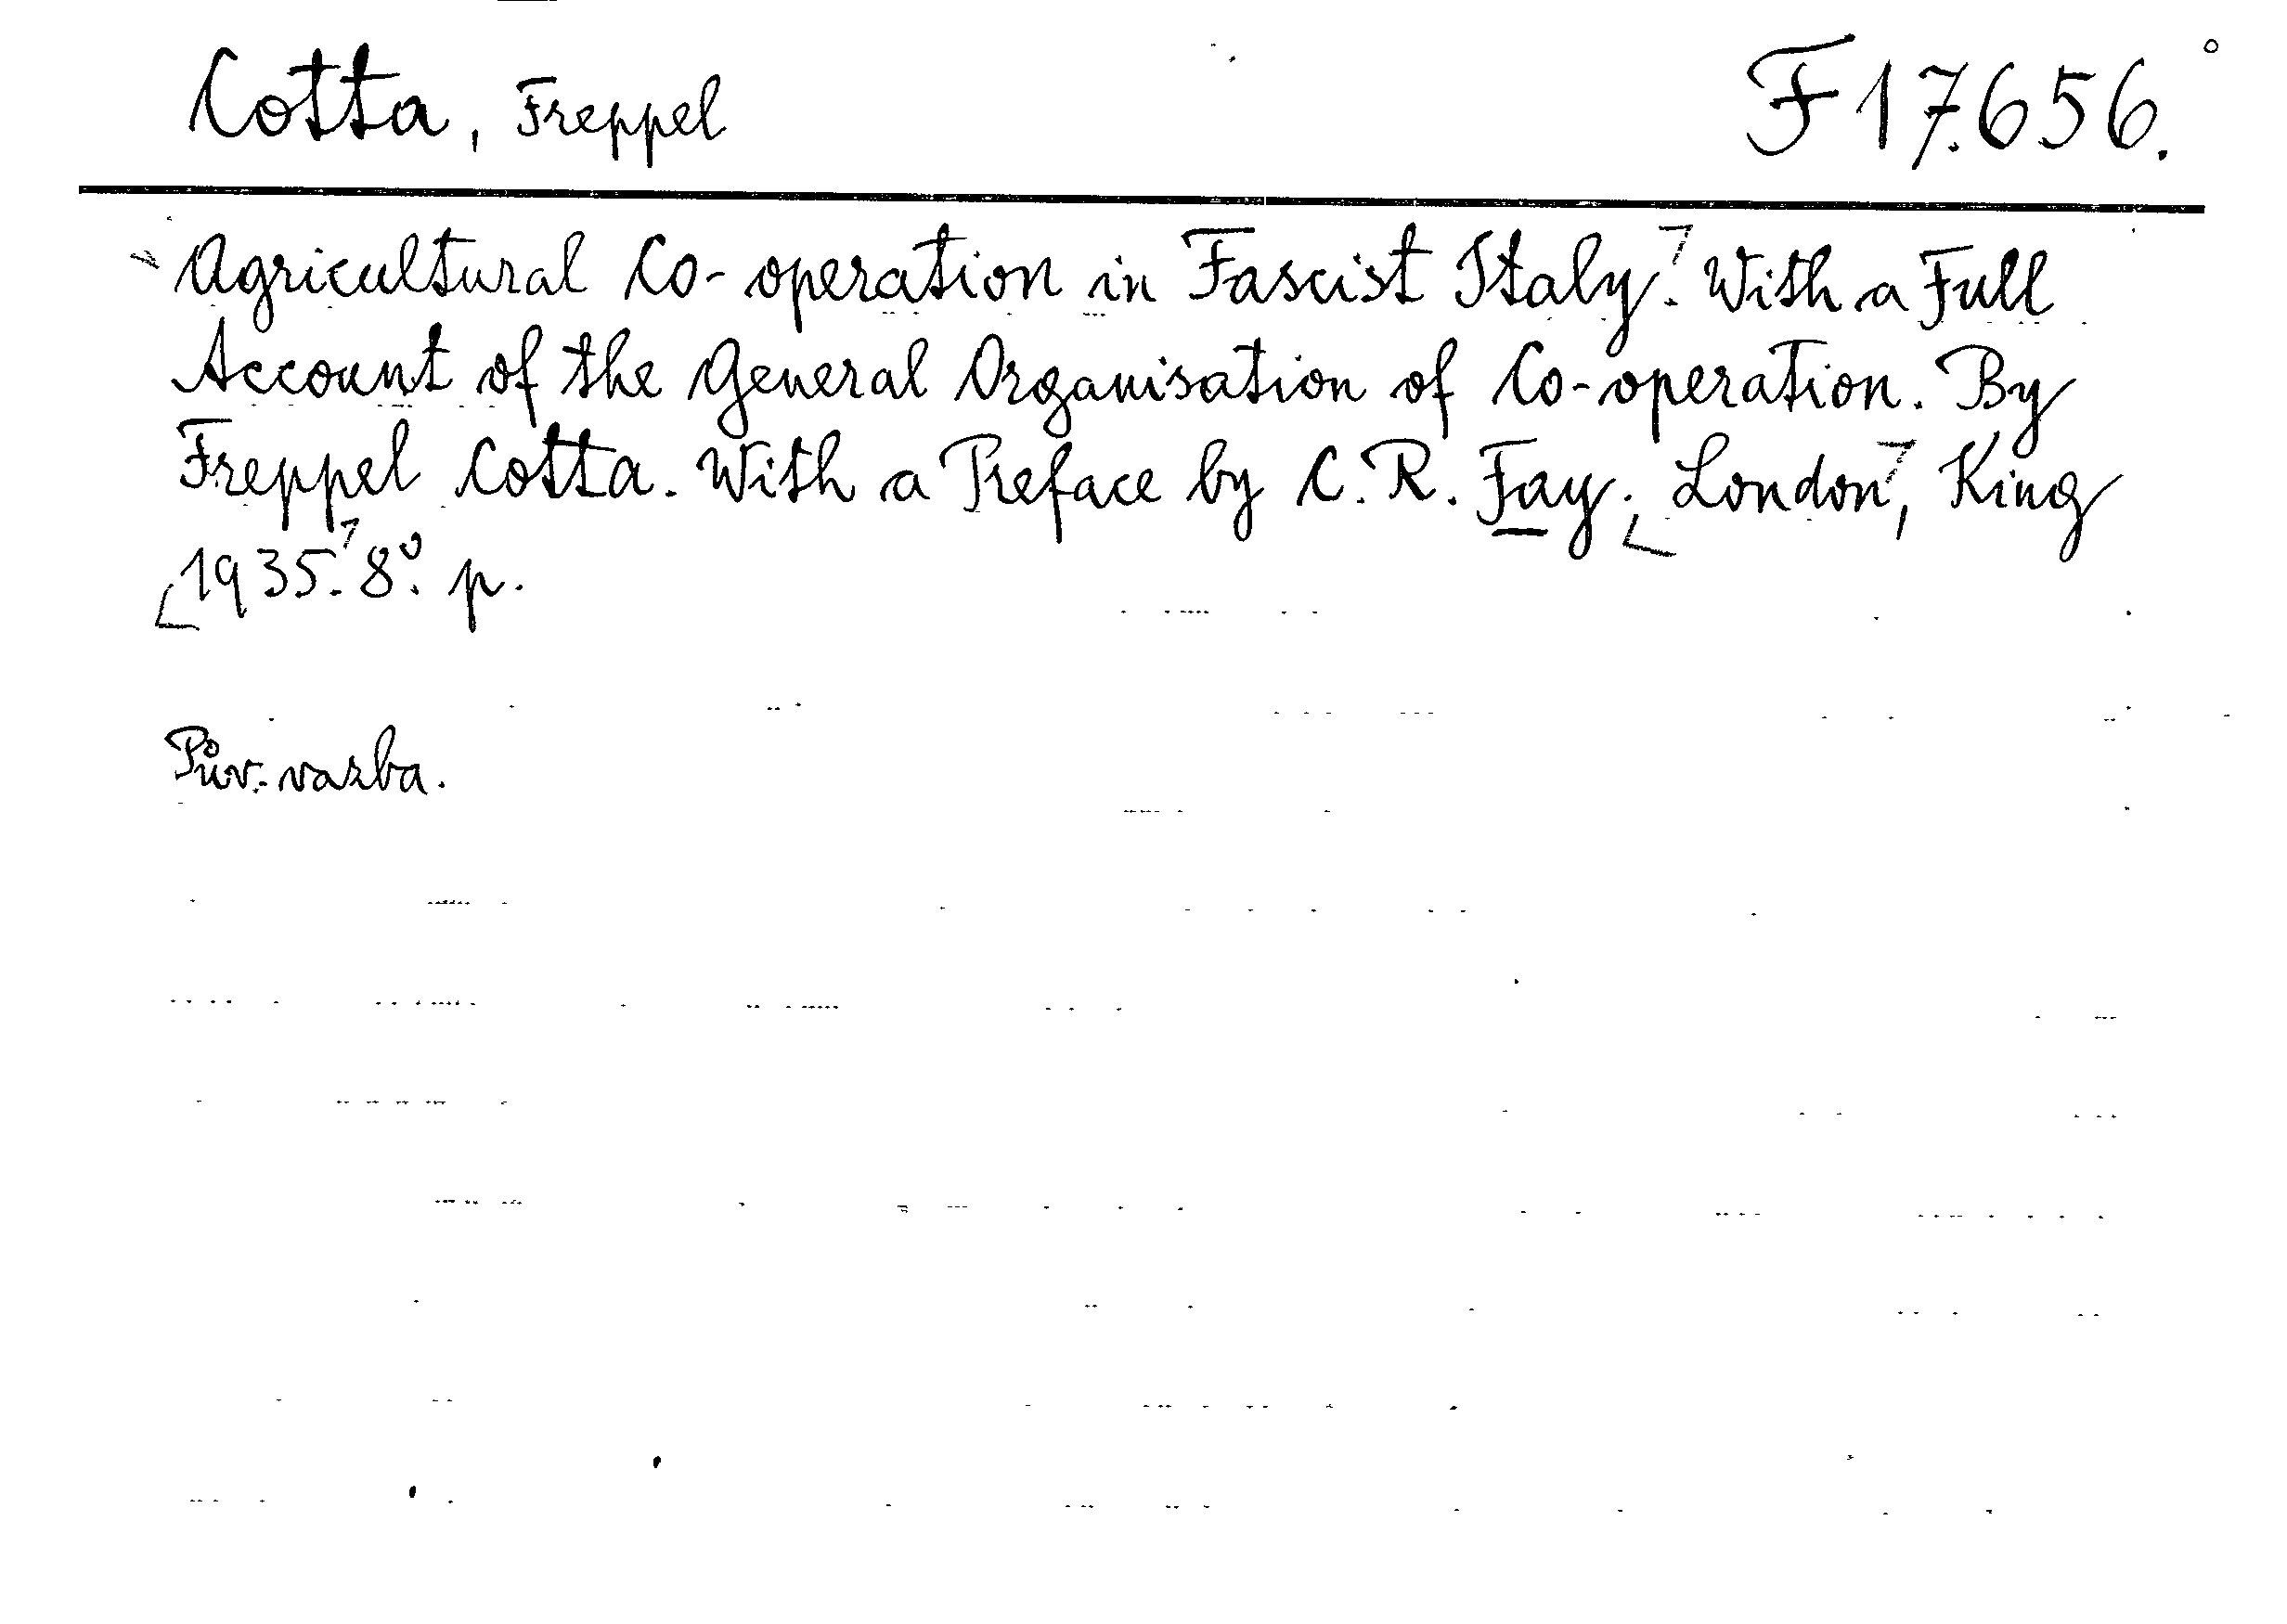 Cotta, Freppel F 17.656.
Agricultural Co-operation in Fascist Italy. With a Full
Account of the General Organisation of Co-operation. By
Freppel Cotta. With a Preface by C. R. Fay. London, King
1935. 8°. p.
Pův. vazba.